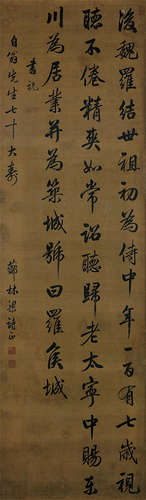 後魏羅結世祖初為侍中年一百有七歲視
聽不倦精爽如常詔聽歸老太寧中賜東
川為居業并為築城號曰羅侯城
書祝
自翁先生七十大壽
薌林梁詩正